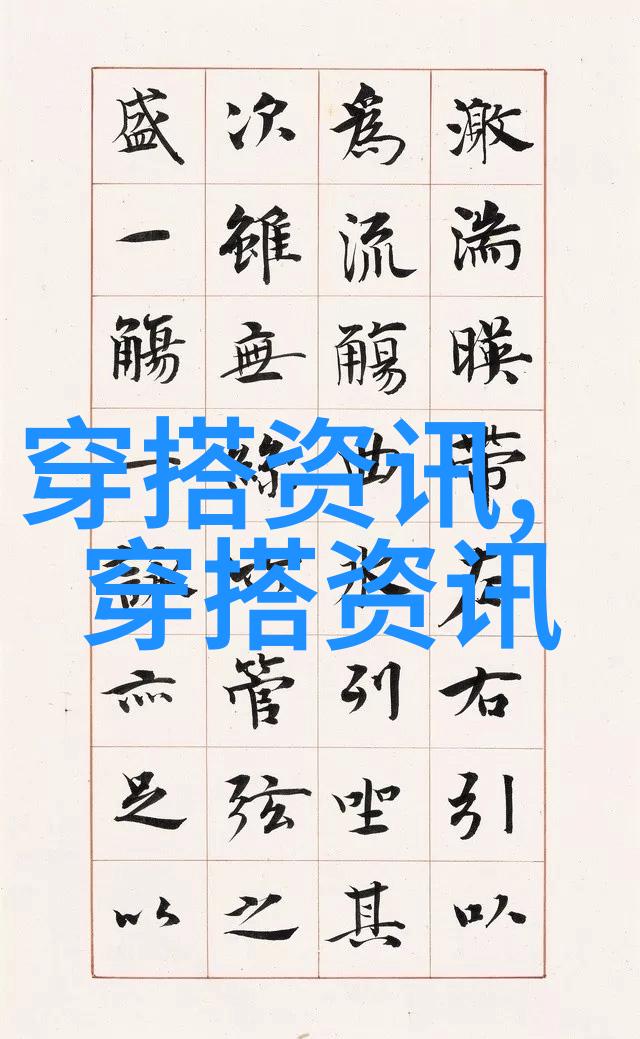 激湍暎帶左右引以
為流觴曲水列坐其
次雖無絲竹管弦之
盛一觴一詠亦足以
穿搭资讯,
穿搭资讯